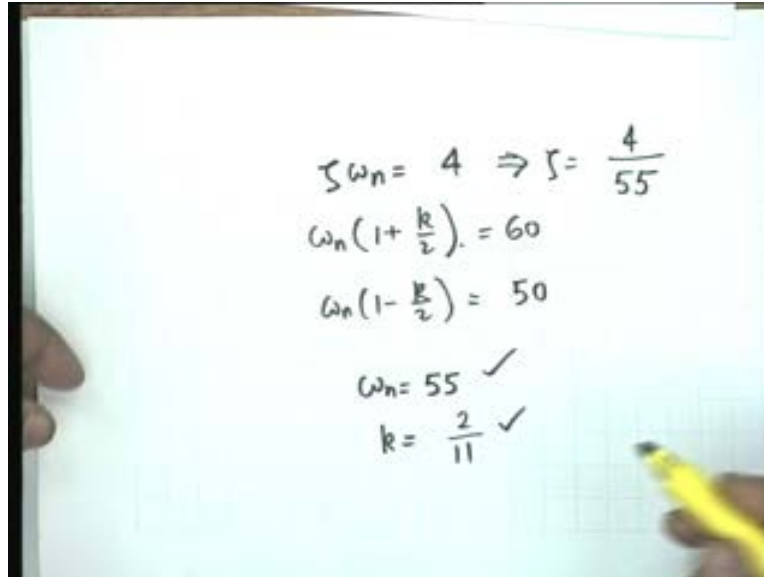 ζωn = 4 ⇒ ζ = 4/55
ωn(1 + k/2). = 60
ωn(1 - k/2) = 50
ωn = 55 ✓
k = 2/11 ✓